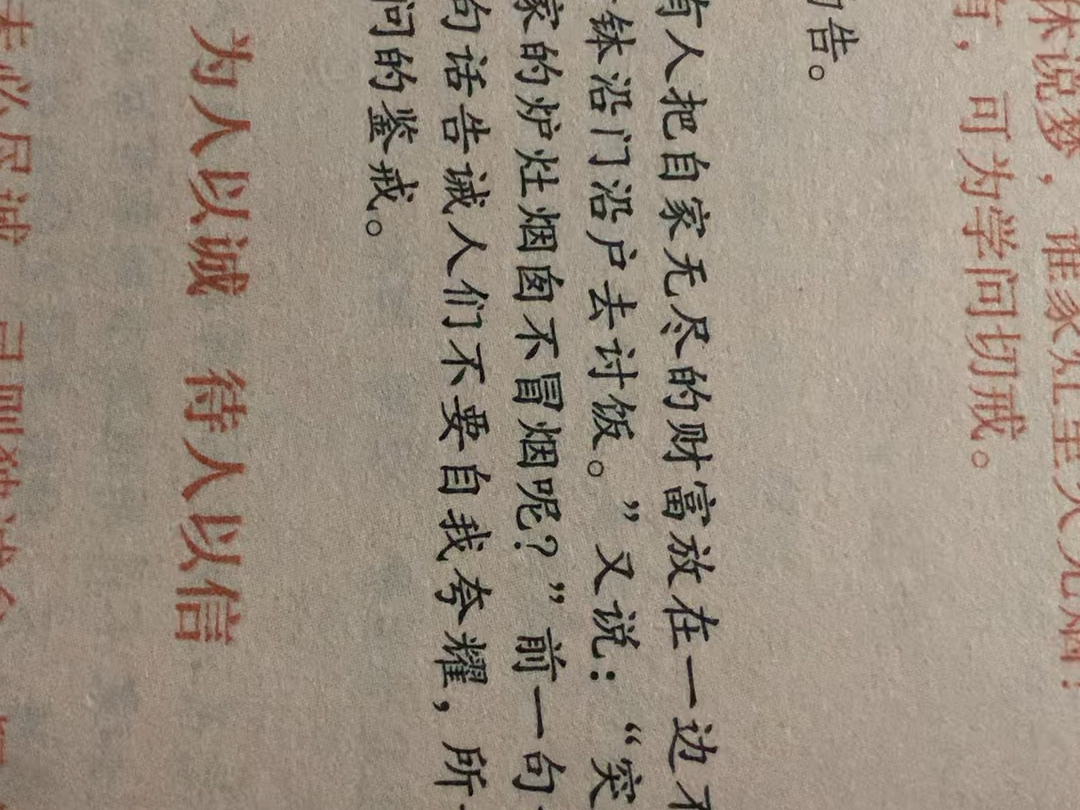 体说梦，谁家灶里火无烟？
有，可为学问切戒。
告。
有人把自家无尽的财富放在一边不
钵沿门沿户去讨饭。”又说：“突
家的炉灶烟囱不冒烟呢？”前一句
句话告诫人们不要自我夸耀，所
问的鉴戒。
为人以诚 待人以信
未必尽诚 己则独诚